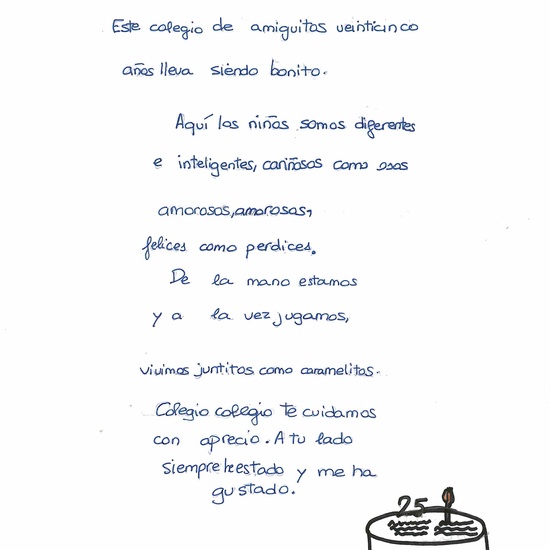 Este colegio de amiguitos veinticinco
años lleva siendo bonito.
Aquí los niños somos diferentes
e inteligentes, cariñosos como osos
amorosos, amorosos,
felices como perdices.
De la mano estamos
y a la vez jugamos,
vivimos juntitos como caramelitos.
Colegio colegio te cuidamos
con aprecio. A tu lado
siempre he estado y me ha
gustado.
25